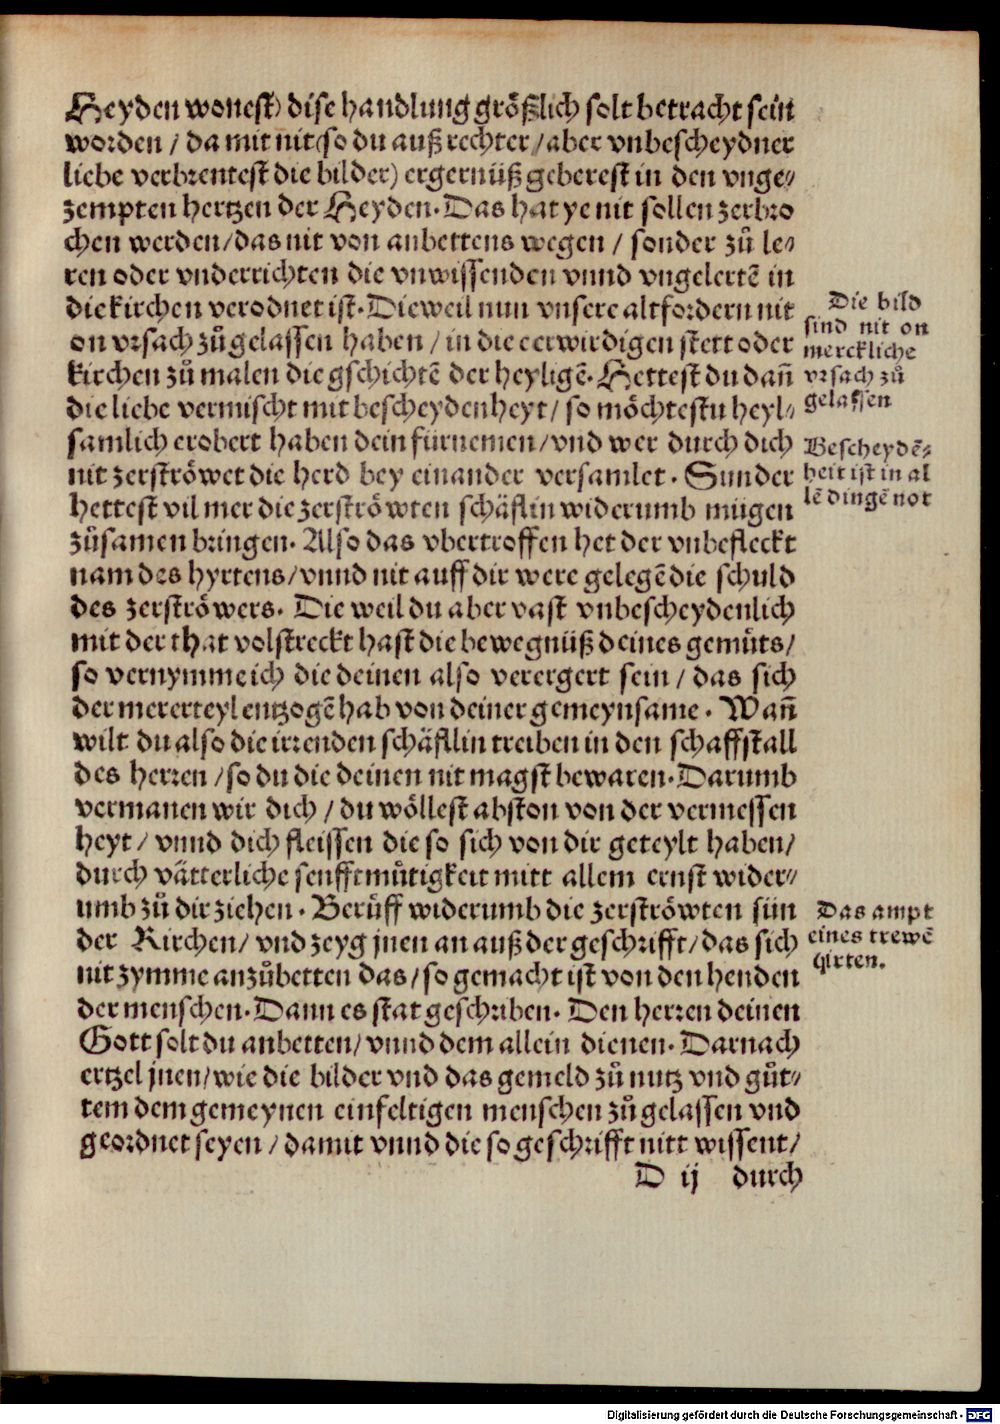 Heyden wonest) dise handlung größlich solt betracht sein
worden / da mit nit (so du auß rechter / aber vnbescheydner
liebe verbrentest die bilder) ergernüß geberest in den vnge⸗
zempten hertzen der Heyden. Das hat ye nit sollen zerbro
chen werden / das nit von anbettens wegen / sonder zů le⸗
ren oder vnderrichten die vnwissenden vnnd vngelertē in
die kirchen verodnet ist. Dieweil nun vnsere altfordern nit
on vrsach zůgelassen haben / in die eerwirdigen stett oder
kirchen zů malen die gschichtē der heyligē. Hettest du dañ
die liebe vermischt mit bescheydenheyt / so möchtestu heyl⸗
samlich erobert haben dein fürnemen / vnd wer durch dich
nit zerströwet die herd bey einander versamlet. Sunder
hettest vil mer die zerströwten schäflin widerumb mügen
zůsamen bringen. Also das vbertroffen het der vnbefleckt
nam des hyrtens / vnnd nit auff dir were gelegē die schuld
des zerströwers. Die weil du aber vast vnbescheydenlich
mit der that volstreckt hast die bewegnüß deines gemůts /
so vernymme ich die deinen also verergert sein / das sich
der mererteyl entzogē hab von deiner gemeynsame. Wañ
wilt du also die irrenden schäfllin treiben in den schaffstall
des herren / so du die deinen nit magst bewaren. Darumb
vermanen wir dich / du wöllest abston von der vermessen
heyt / vnnd dich fleissen die so sich von dir geteylt haben /
durch vätterliche senfftmůtigkeit mitt allem ernst wider⸗
umb zů dir ziehen. Berůff widerumb die zerströwten sün
der Kirchen / vnd zeyg jnen an auß der geschrifft / das sich
nit zymme anzůbetten das / so gemacht ist von den henden
der menschen. Dann es stat geschriben. Den herren deinen
Gott solt du anbetten / vnnd dem allein dienen. Darnach
ertzel jnen / wie die bilder vnd das gemeld zů nutz vnd gůt⸗
tem dem gemeynen einfeltigen menschen zůgelassen vnd
geordnet seyen / damit vnnd die so geschrifft nitt wissent /
D ij durch
Die bild
sind nit on
merckliche
vrsach zů
gelassen
Bescheydē⸗
heit ist in al
lē dingē not
Das ampt
eines trewē
hirten.
Digitalisierung gefördert durch die Deutsche Forschungsgemeinschaft - DFG